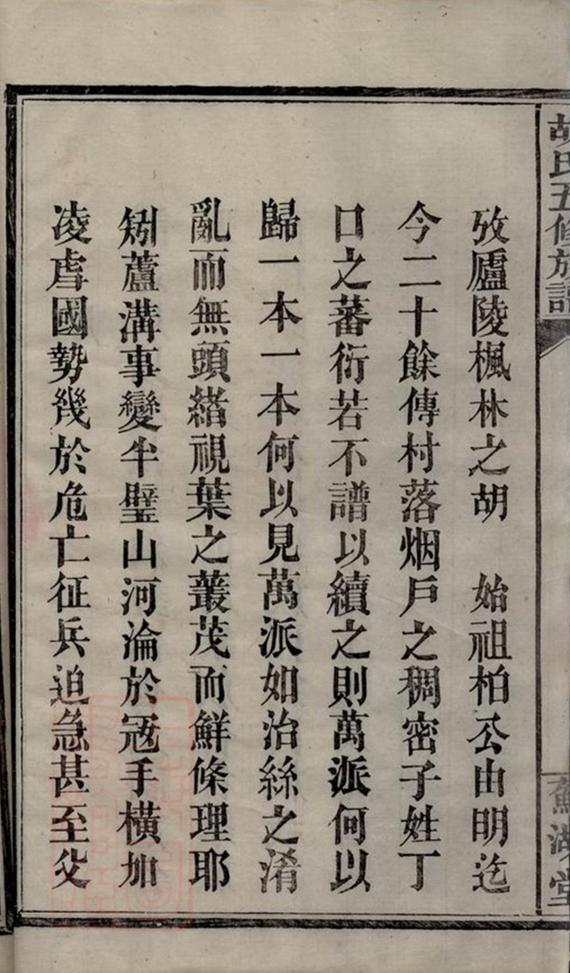 胡氏五修族譜
蘇湖堂
攷廬陵楓林之胡　始祖柏公由明迄
今二十餘傳村落烟戶之稠密子姓丁
口之蕃衍若不譜以續之則萬派何以
歸一本一本何以見萬派如治絲之淆
亂而無頭緒視葉之叢茂而鮮條理耶
矧蘆溝事變半壁山河淪於寇手橫加
凌虐國勢幾於危亡征兵迫急甚至父